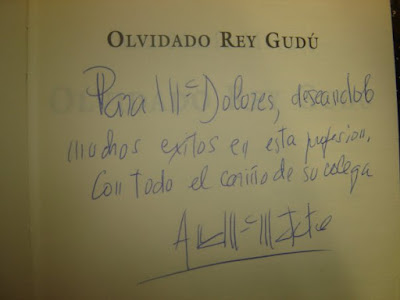 OLVIDADO REY GUDÚ
Para Mª Dolores, deseandole
muchos exitos en esta profesion.
Con todo el cariño de su colega
Ana Mª Matute